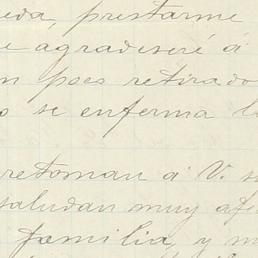 eda, prestarme
e agradeseré á
n poes retirado
o se enferma la
retornan á V. s
saludan muy afe
familia, y m